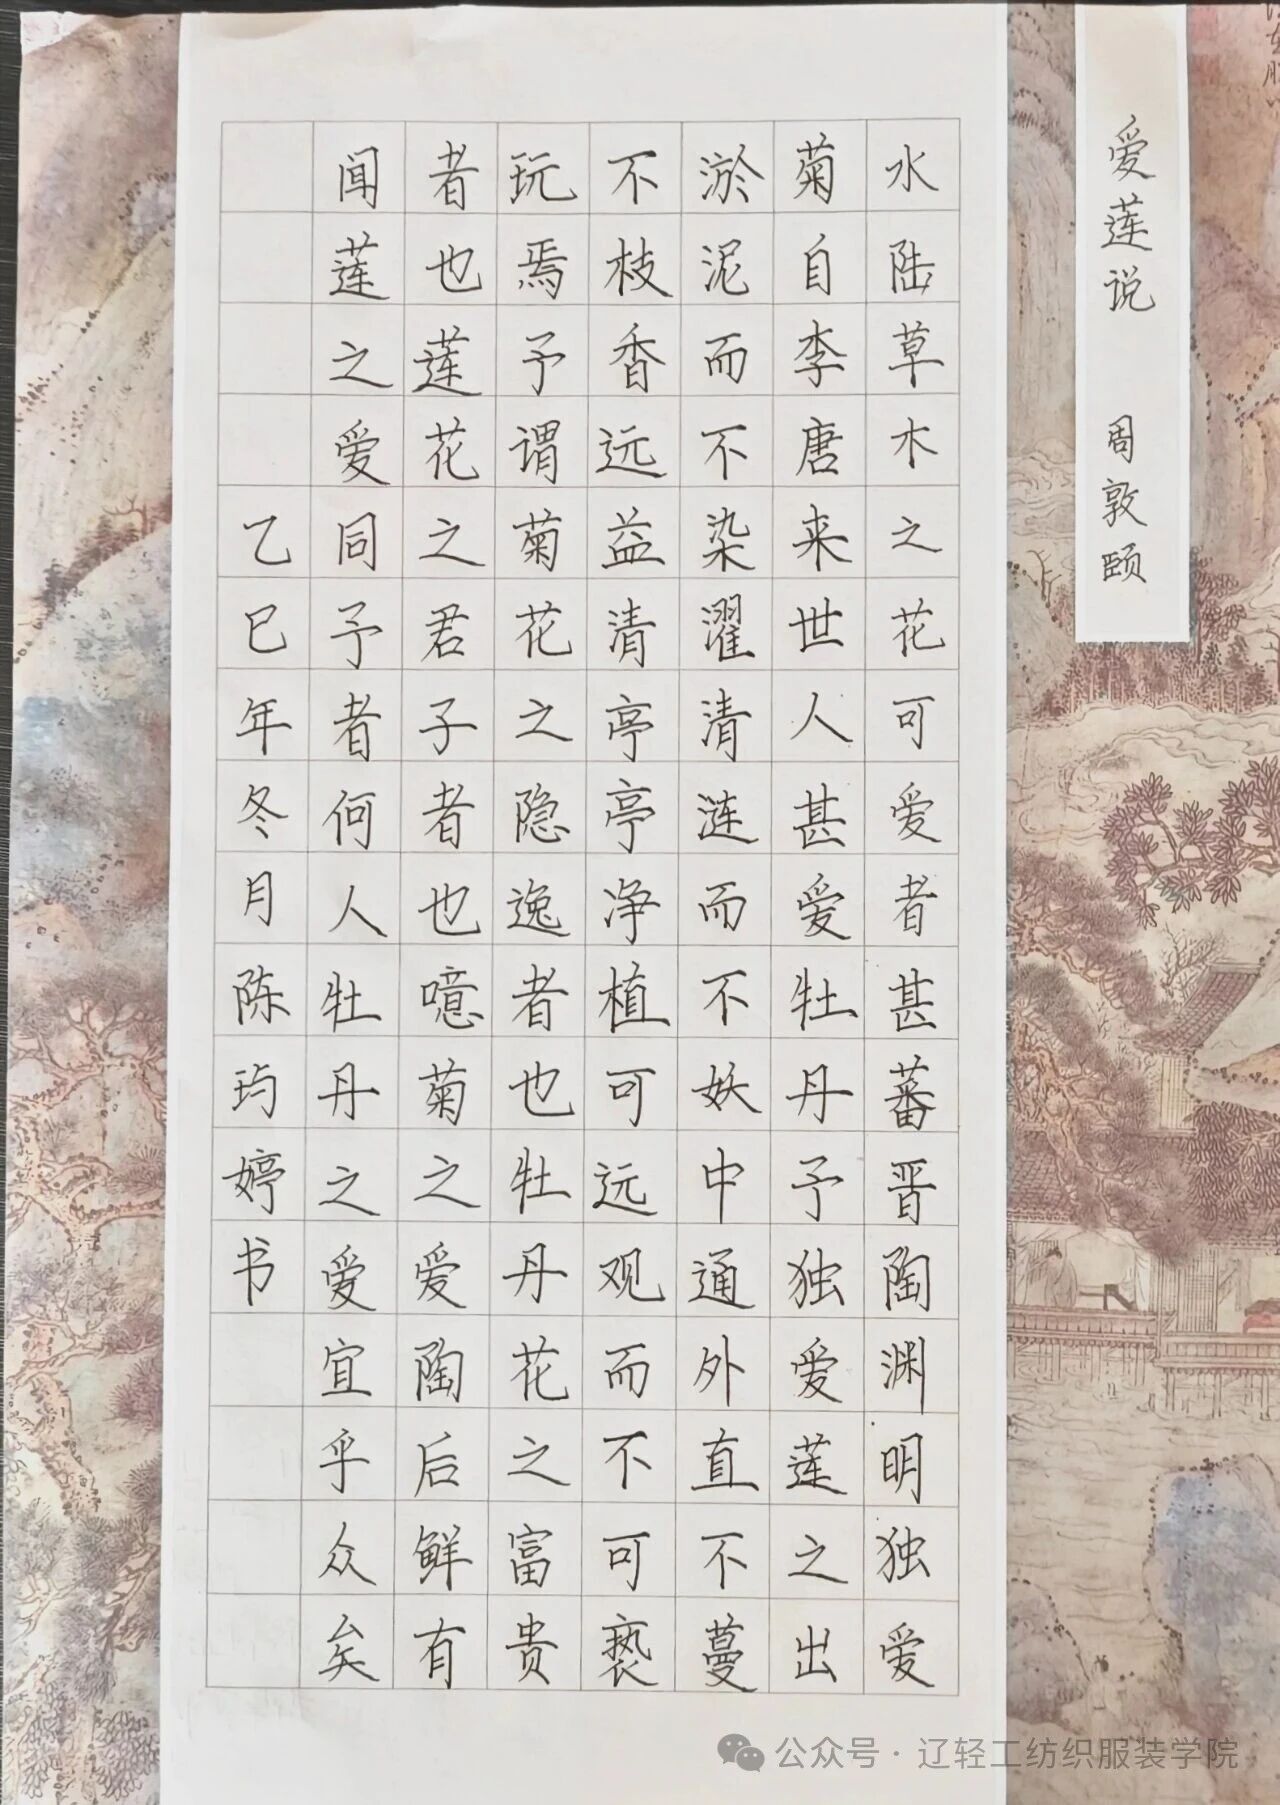 爱莲说 周敦颐
水陆草木之花可爱者甚蕃晋陶渊明独爱
菊自李唐来世人甚爱牡丹予独爱莲之出
淤泥而不染濯清涟而不妖中通外直不蔓
不枝香远益清亭亭净植可远观而不可亵
玩焉予谓菊花之隐逸者也牡丹花之富贵
者也莲花之君子者也噫菊之爱陶后鲜有
闻莲之爱同予者何人牡丹之爱宜乎众矣
乙巳年冬月陈玙婷书
公众号·辽轻工纺织服装学院